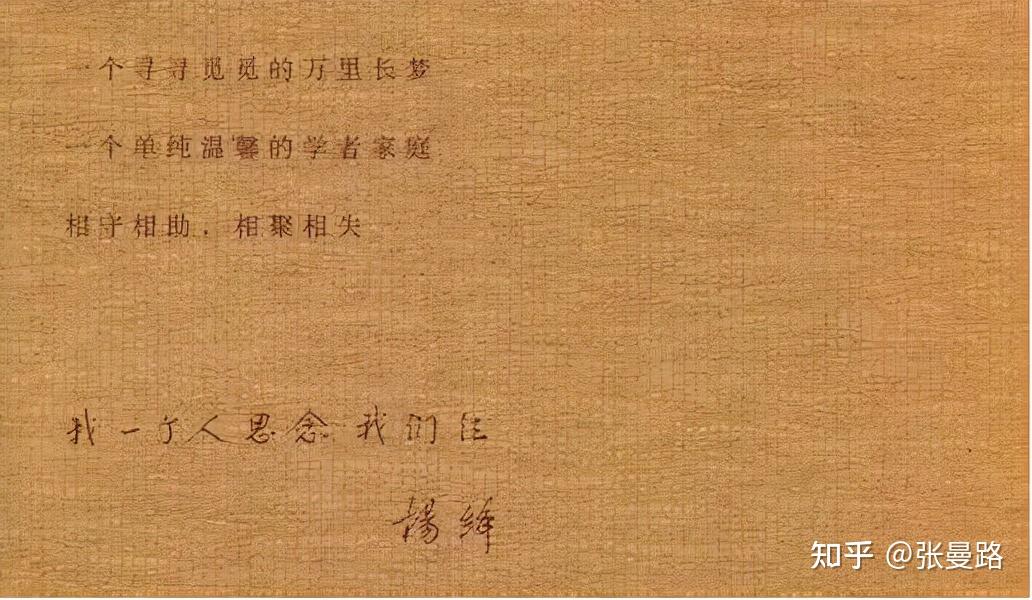 一个寻寻觅觅的万里长梦
一个单纯温馨的学者家庭
相守相助，相聚相失
我一个人思念我们仨
楊絳
知乎 @张曼路